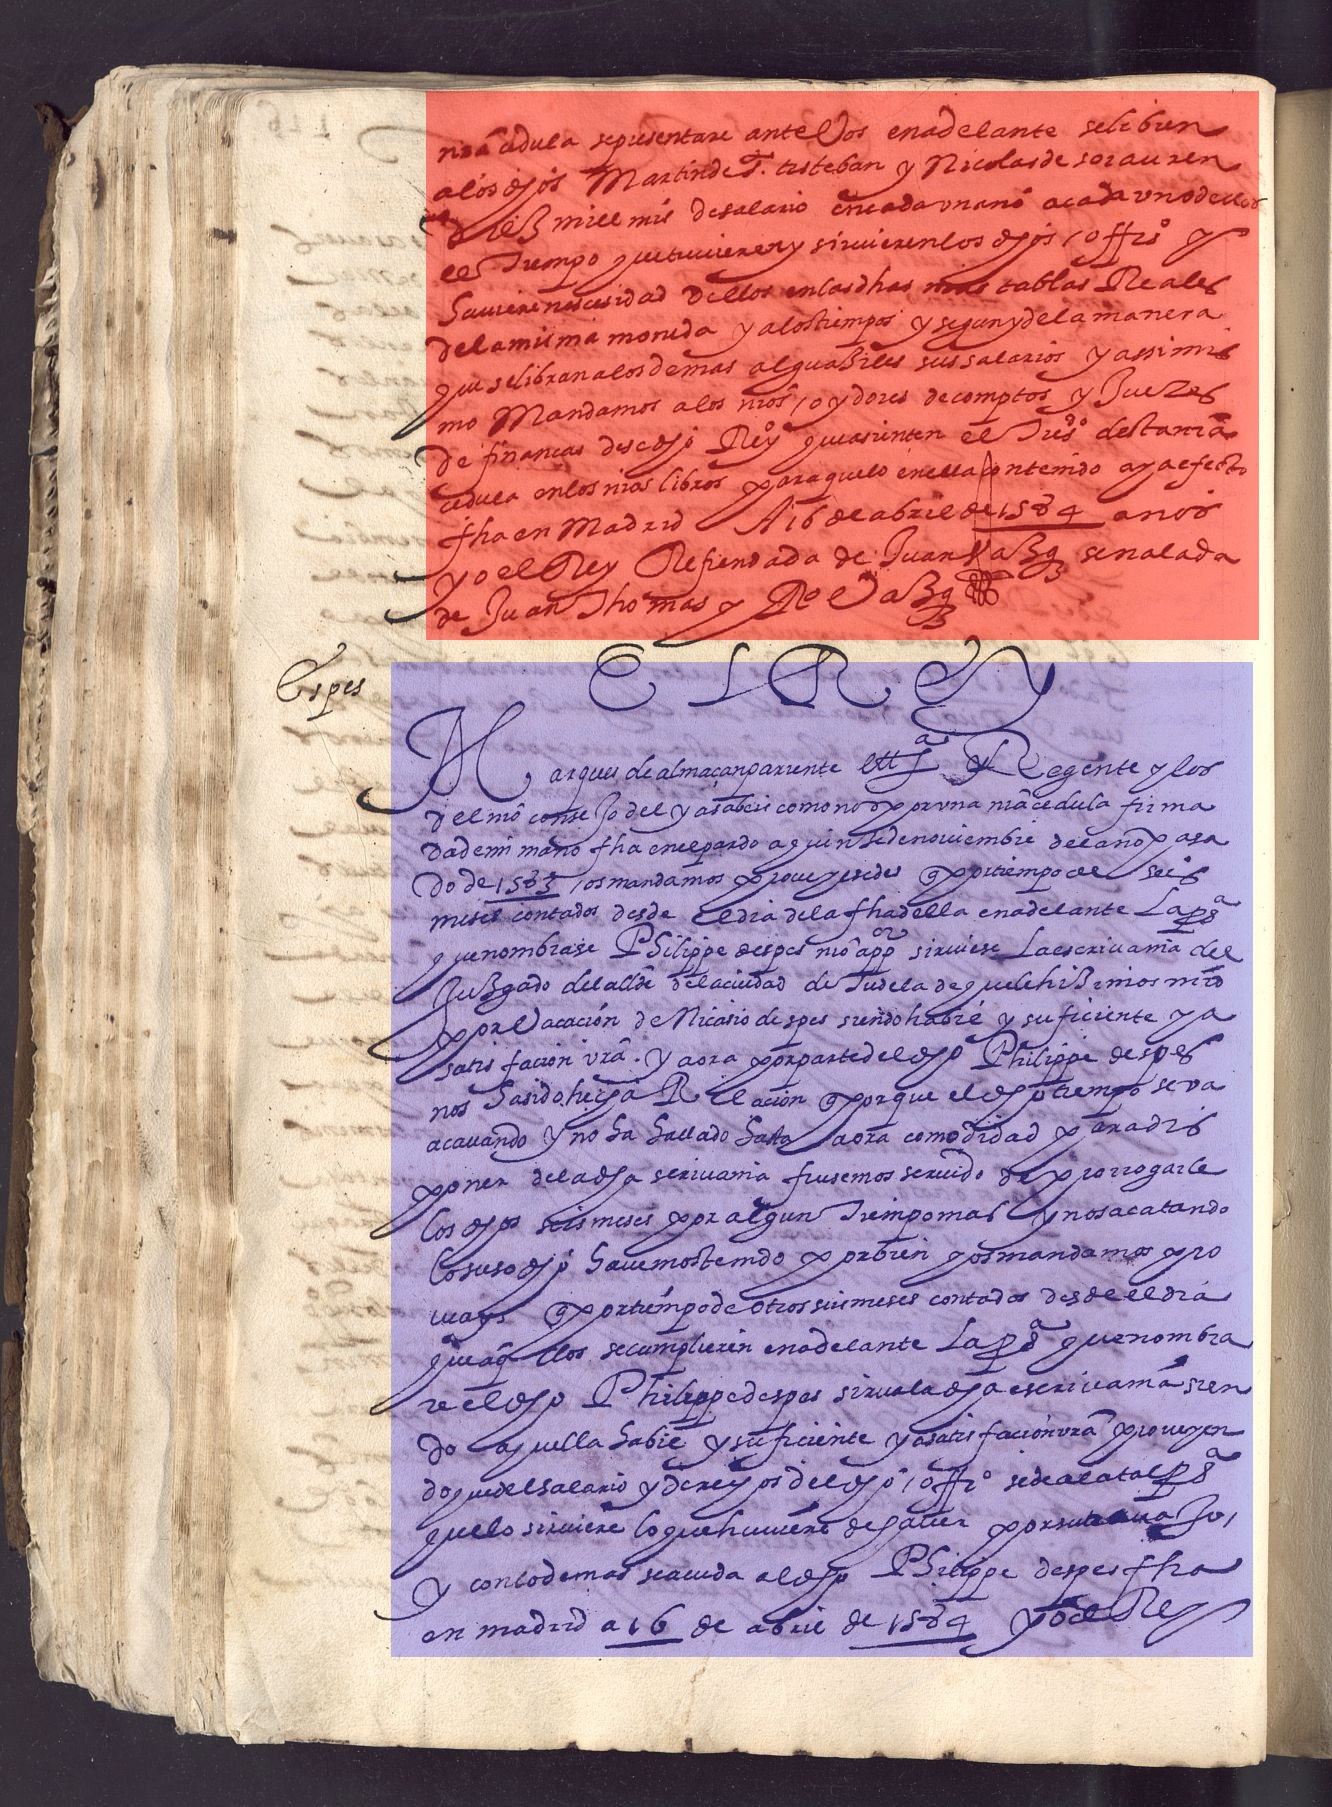 nrã cedula sepresentare ante Vos enadelante selibren
alos dhos Martin de S. tisteban y Nicolas de sorauren
diez mill mrs desalario encada vnaño acada vno dellos
el Tiempo quetuuieren y siruieren los dhos officios y
huuiere nescesidad dellos enlas dhas nrãs tablas Reales
dela misma moneda y alostiempos y segun y dela manera
que selibran alos demas alguaziles sus salarios y assimis
mo Mandamos alos nros oydores decomptos y Juezes
de finanças desse dho Rey que asienten el Treso desta nrã
cedula enlos nros libros para quelo enella contenido aya efecto
fha en Madrid A 16 de abril de 1584 años
yo el Rey Refrendada de Juan Vazqz senalada
de Juan Thomas y Ro Vazqz
Espes
El Rey
Marques de almaçan pariente Regente y los
del nro consejo del ya sabeis como nos por vna nrã cedula firma
dademi mano fha enel pardo a quinse denouiembre del año pasa
do de 1583 os mandamos proueyesedes q por tiempo de seis
meses contados desde el dia dela fha della enadelante La pa
quenombrase Philippe despes nro siruiese La escriuania del
Juzgado del allde dela ciudad de Tudela de quele hizimos mrd
por Vacacion de Nicasio despes siendo habil y suficiente y a
satisfacion vrã. y aora por parte del dho Philippe despes
nos ha sido hecha Relacion q porque el dho tiempo se va
acauando y no ha hallado hasta aora comodidad para dis
poner dela dha scriuania fuesemos seruido de prorrogarle
los dhos seis meses por algun Tiempo mas y nos acatando
lo suso dho hauemos tenido por bien y os mandamos pro
ueays q por tiempo de otros seis meses contados desde el dia
que aqllos secumplieren enadelante La pa quenombra
re el dho Philippe despes sirua la dha escriuania sien
do aquella habil y suficiente y a satisfacion vrã proueyen
do que del salario y derechos del dho officio sede ala tal pa
quelo siruiere lo que huuiere de hauer por su trauajo,
y con lo demas se acuda al dho Philippe despes fha
en madrid a 16 de abril de 1584 yo el Rey